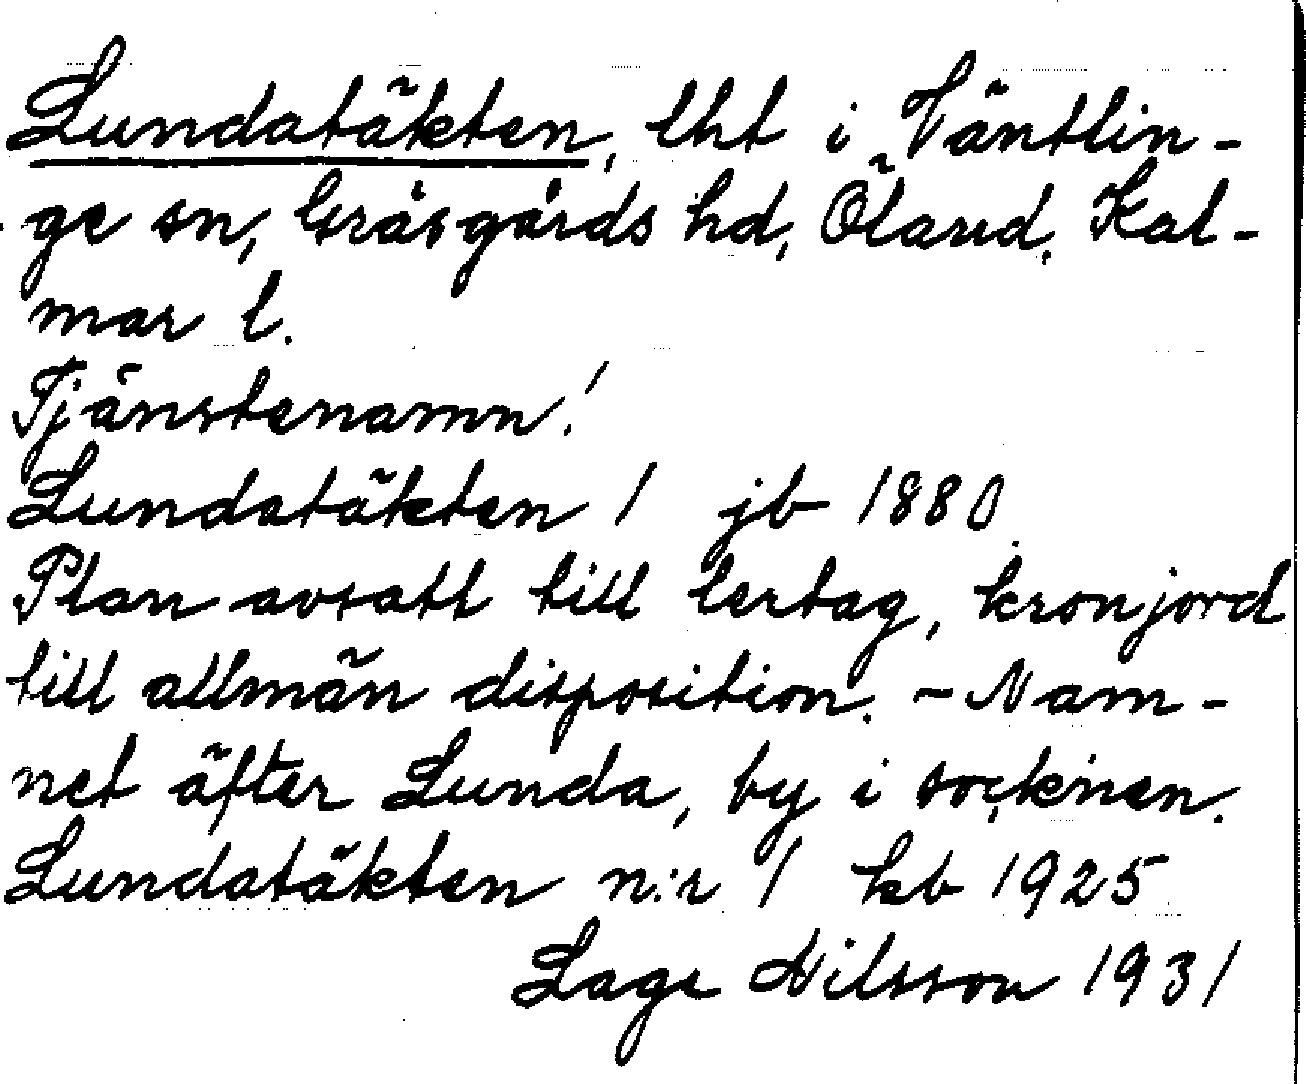 Lundatäkten, lht i Väntlin-
ge sn, Gräsgårds hd, Öland, Kal-
mar l.
Tjänstenamn!
Lundatäkten 1 jb 1880.
Plan avsatt till lertag, kronjord
till allmän disposition. - Nam-
net äfter Lunda, by i socknen.
Lundatäkten n:r 1 kb 1925
Lage Nilsson 1931